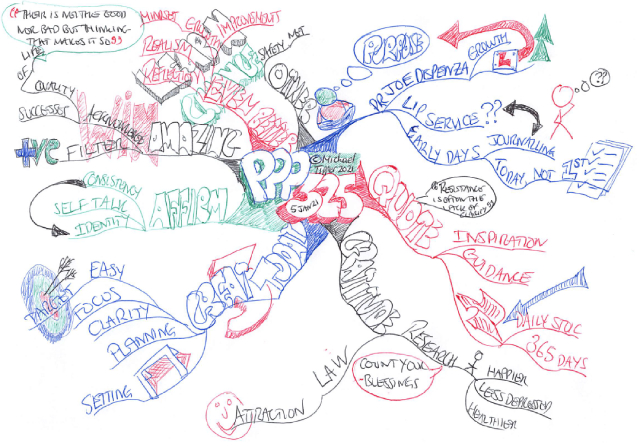 "THERE IS NOTHING GOOD
NOR BAD BUT THINKING
THAT MAKES IT SO"
MINDSET
IMPROVEMENTS
REALISM
REFLECTION
SAFETY NET
OTHERS
LIFE
OF
QUALITY
SUCCESSES
ACKNOWLEDGE
+VE
FILTER
AMAZING
CONSISTENCY
SELF TALK
IDENTITY
AFFIRM
PPP
325
5 JAN 21
© Michael
Tipper 2021
PURPOSE
DR JOE DISPENZA
GROWTH
L
LIP SERVICE??
??
EARLY DAYS
JOURNALLING
TODAY, NOT
1ST
QUOTE
"RESISTANCE
IS OFTEN THE
LACK OF
CLARITY"
INSPIRATION
GUIDANCE
DAILY STOIC
365 DAYS
GRATITUDE
RESEARCH
HAPPIER
LESS DEPRESSED
HEALTHIER
COUNT YOUR
BLESSINGS
LAW
ATTRACTION
GREAT
TODAY
EASY
FOCUS
TARGET
CLARITY
PLANNING
SETTING